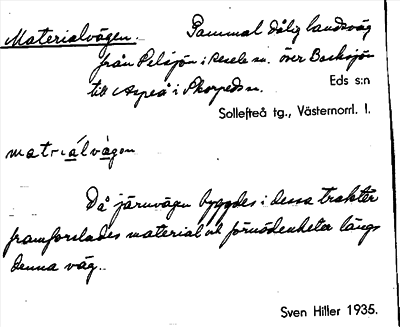 Materialvägen. Gammal dålig landsväg
från Pelsjön i Resele sn. över Backsjön
Eds s:n
till Aspeå i Skorpeds sn.
Sollefteå tg., Västernorrl. l.
matriálvägen
Då järnvägen byggdes i dessa trakter
framforslades material och förnödenheter längs
denna väg.
Sven Hiller 1935.